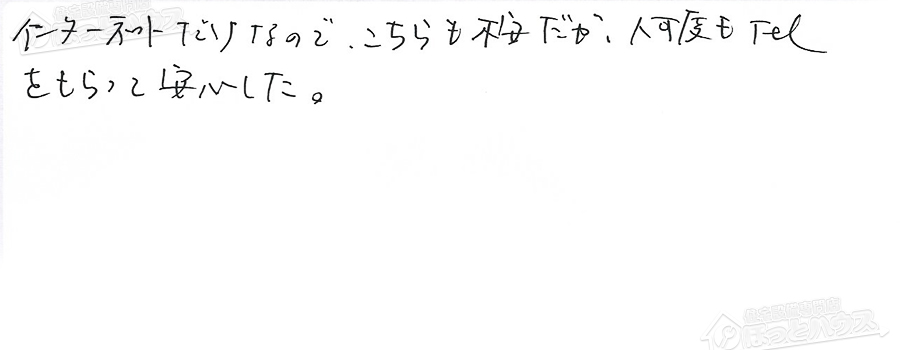 インターネットだけなので、こちらも不安だが、何度もTel
をもらって安心した。
住宅設備専門店
ほっとハウス